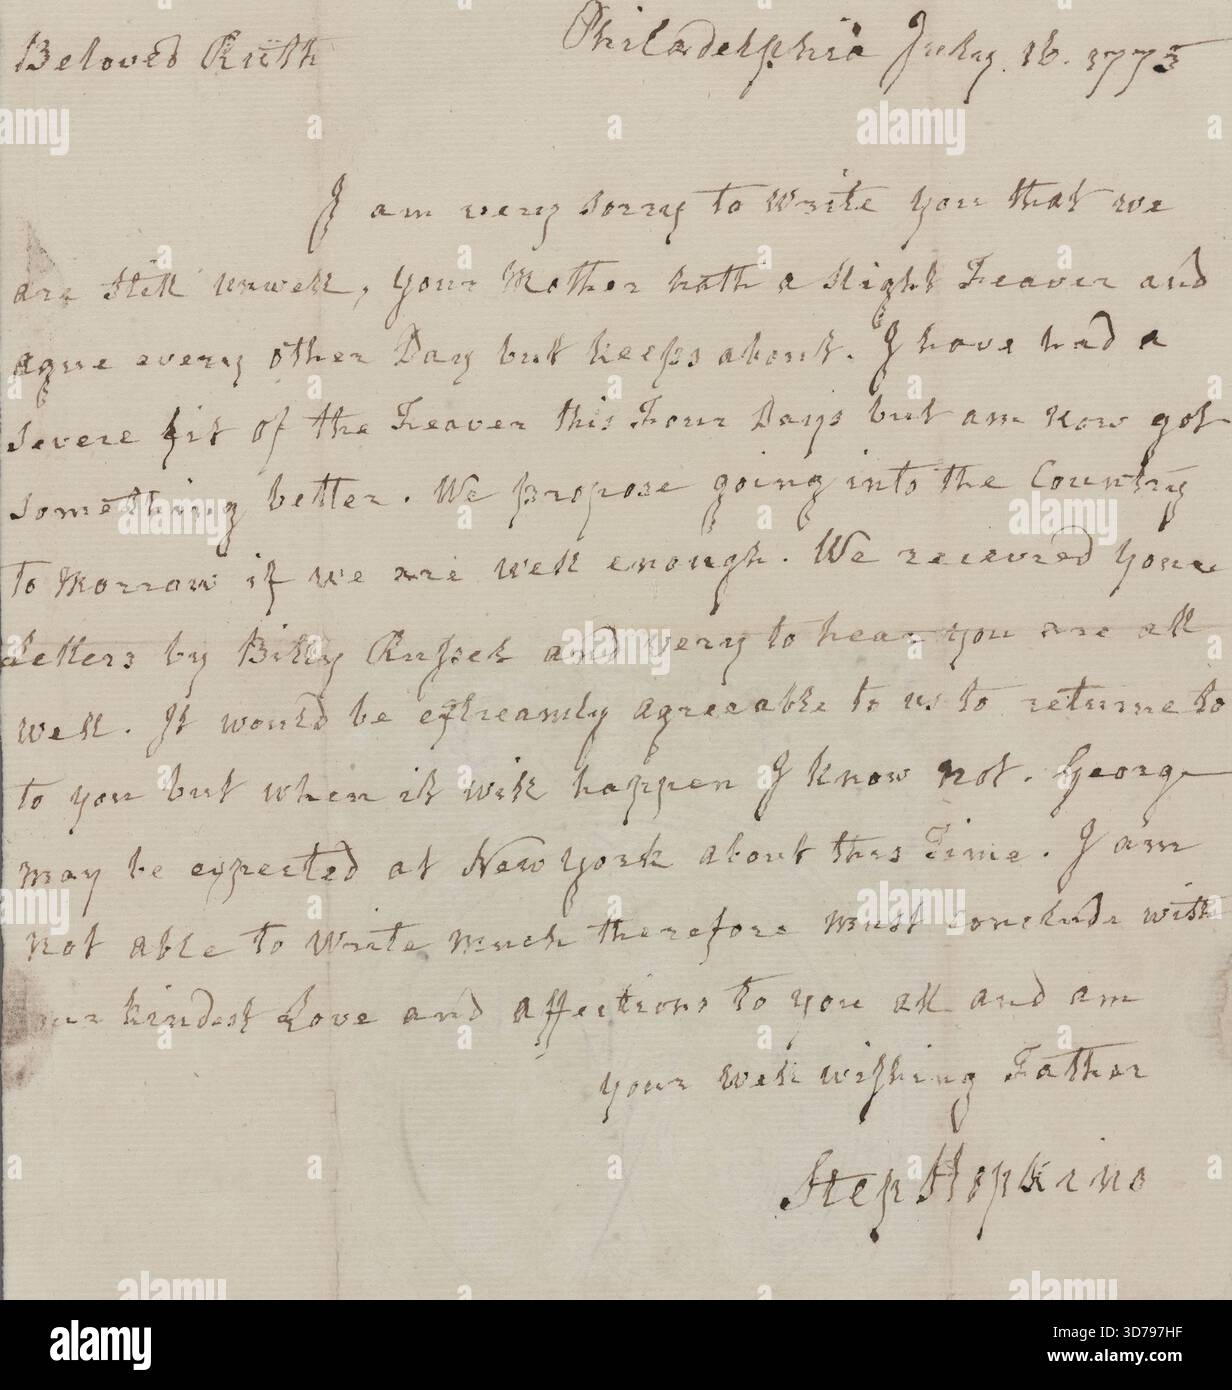 Beloved Ruth Philadelphia July 16. 1775
I am very sorry to write you that we
are still unwell, your Mother hath a slight Feaver and
ague every other Day but keeps about. I have had a
severe fit of the Feaver this Four Days but am now got
something better. We propose going into the Country
to Morrow if we are well enough. We recieved your
Letters by Billy Russel and very to hear you are all
well. It would be extreamly agreeable to us to returne to
to you but when it will happen I know not. George
may be expected at New York about this Time. I am
not able to write much therefore must conclude with
our kindest Love and affections to you all and am
your well wishing Father
Step Hopkins
alamy
Image ID: 3D797HF
www.alamy.com